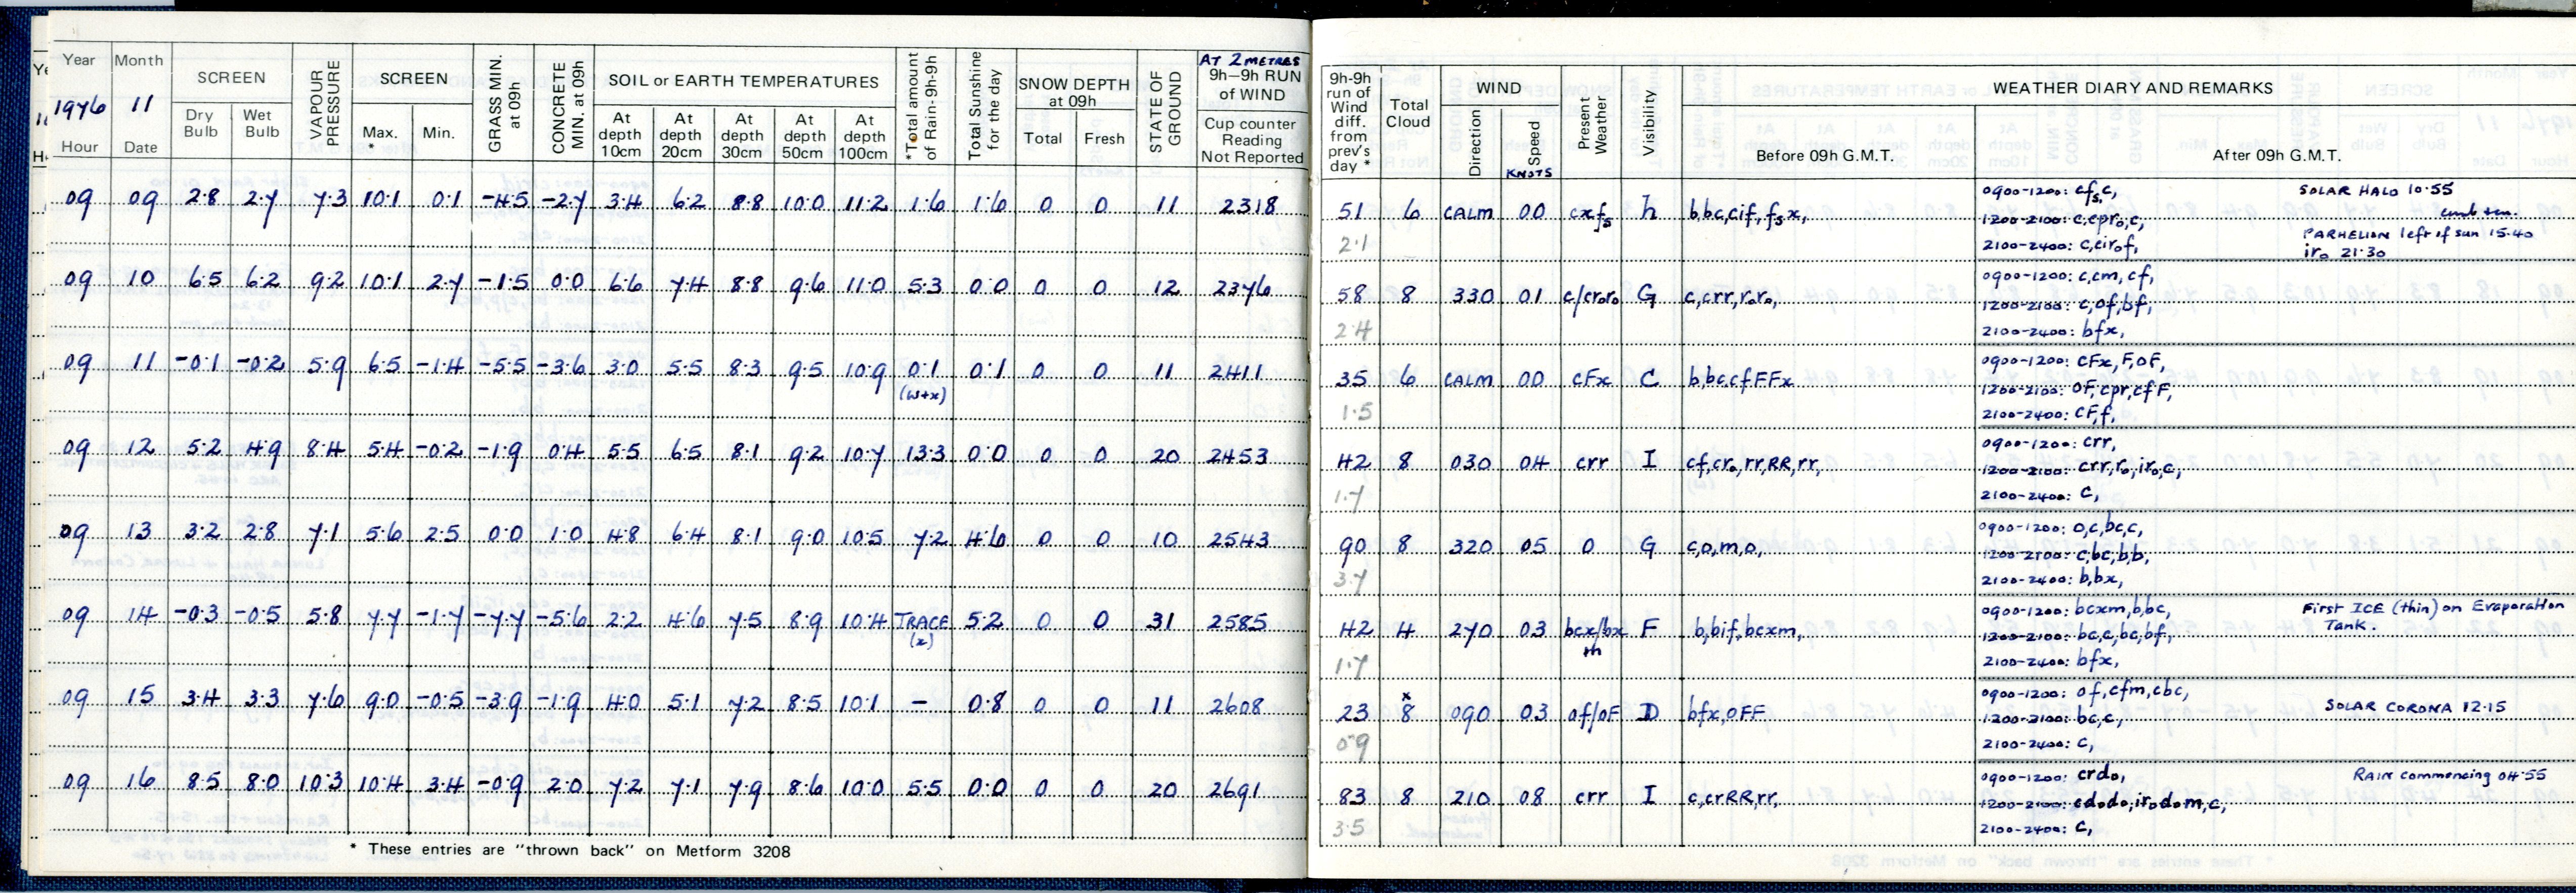 Year Month SCREEN VAPOUR PRESSURE SCREEN GRASS MIN. at 09h CONCRETE MIN. at 09h SOIL or EARTH TEMPERATURES *Total amount of Rain-9h-9h Total Sunshine for the day SNOW DEPTH at 09h STATE OF GROUND AT 2 METRES 9h–9h RUN of WIND
1976 11
Hour Date Dry Bulb Wet Bulb Max. * Min. At depth 10cm At depth 20cm At depth 30cm At depth 50cm At depth 100cm Total Fresh Cup counter Reading Not Reported
09 09 2.8 2.7 7.3 10.1 0.1 -4.5 -2.7 3.4 6.2 8.8 10.0 11.2 1.6 1.6 0 0 11 2318
09 10 6.5 6.2 9.2 10.1 2.7 -1.5 0.0 6.6 7.4 8.8 9.6 11.0 5.3 0.0 0 0 12 2376
09 11 -0.1 -0.2 5.9 6.5 -1.4 -5.5 -3.6 3.0 5.5 8.3 9.5 10.9 0.1 0.1 0 0 11 2411
(w+x)
09 12 5.2 4.9 8.4 5.4 -0.2 -1.9 0.4 5.5 6.5 8.1 9.2 10.7 13.3 0.0 0 0 20 2453
09 13 3.2 2.8 7.1 5.6 2.5 0.0 1.0 4.8 6.4 8.1 9.0 10.5 7.2 4.6 0 0 10 2543
09 14 -0.3 -0.5 5.8 7.7 -1.7 -7.7 -5.6 2.2 4.6 7.5 8.9 10.4 TRACE 5.2 0 0 31 2585
(x)
09 15 3.4 3.3 7.6 9.0 -0.5 -3.9 -1.9 4.0 5.1 7.2 8.5 10.1 – 0.8 0 0 11 2608
09 16 8.5 8.0 10.3 10.4 3.4 -0.9 2.0 7.2 7.1 7.9 8.6 10.0 5.5 0.0 0 0 20 2691
* These entries are "thrown back" on Metform 3208
9h-9h run of Wind diff. from prev's day * Total Cloud WIND Present Weather Visibility WEATHER DIARY AND REMARKS
Direction Speed KNOTS Before 09h G.M.T. After 09h G.M.T.
51 6 CALM 00 cxfs h b,bc,cif,fsx, 0900-1200: cfs,c, SOLAR HALO 10.55
1200-2100: c,cpro,c,
PARHELION left of sun 15.40
2.1 2100-2400: c,ciro,f,
iro 21.30
58 8 330 01 c/croro G c,crr,roro, 0900-1200: c,cm,cf,
1200-2100: c,of,bf,
2.4 2100-2400: bfx,
35 6 CALM 00 cFx C b,bc,cfFFx 0900-1200: cFx,F,oF,
1200-2100: oF,cpr,cfF,
1.5 2100-2400: cF,f,
42 8 030 04 crr I cf,cro,rr,RR,rr, 0900-1200: crr,
1200-2100: crr,ro,iro,c,
1.7 2100-2400: c,
90 8 320 05 0 G c,o,m,o, 0900-1200: o,c,bc,c,
1200-2100: c,bc,b,b,
3.7 2100-2400: b,bx,
42 4 270 03 bcx/bx m F b,bif,bcxm, 0900-1200: bcxm,b,bc, First ICE (thin) on Evaporation
Tank.
1200-2100: bc,c,bc,bf,
1.7 2100-2400: bfx,
x
23 8 090 03 of/oF D bfx,oFF 0900-1200: of,cfm,cbc,
1200-2100: bc,c, SOLAR CORONA 12.15
0.9 2100-2400: c,
83 8 210 08 crr I c,crRR,rr, 0900-1200: crdo, RAIN commencing 04.55
1200-2100: cdodo,irodom,c,
3.5 2100-2400: c,